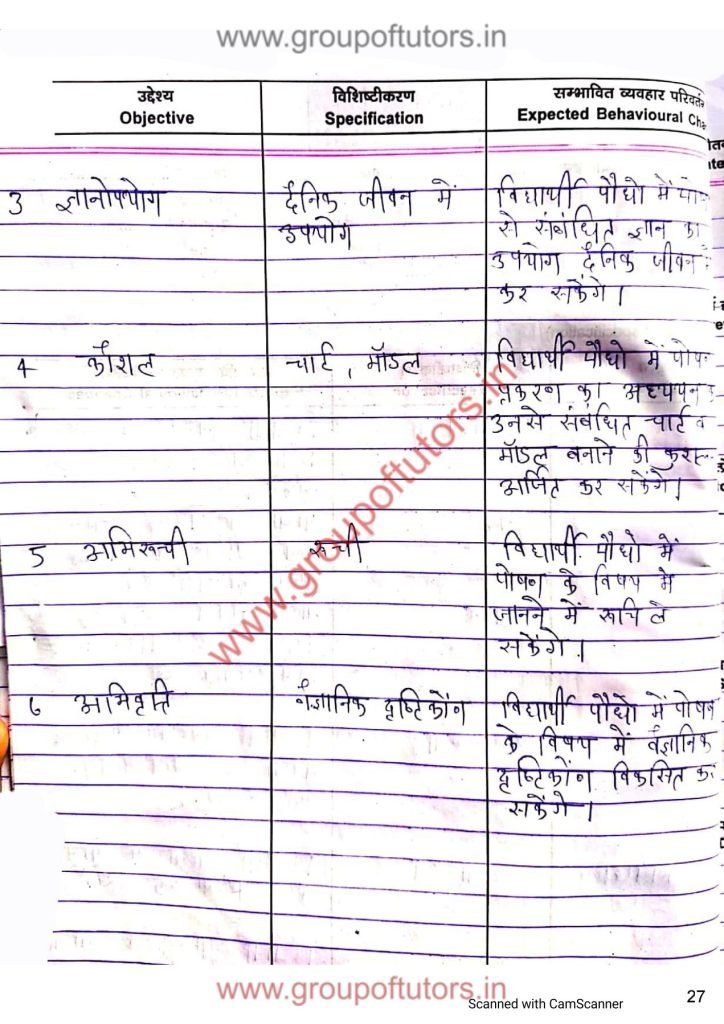 www.groupoftutors.in
उद्देश्य
Objective
विशिष्टीकरण
Specification
सम्भावित व्यवहार
Expected Behavioural
3 ज्ञानोपयोग
दैनिक जीवन में
उपयोग
विद्यार्थी पौधो में
से संबंधित ज्ञान का
उपयोग दैनिक जीवन
कर सकेंगे ।
4 कौशल
चार्ट, मॉडल
विद्यार्थी पौधो में
प्रकरण का अध्ययन
उनसे संबंधित चार्ट व
मॉडल बनाने की
अर्जित कर सकेंगे ।
5 अभिरूची
रूची
विद्यार्थी पौधो में
पोषन के विषय में
जानने में रूचि ले
सकेंगे ।
6 अभिवृत्ति
वैज्ञानिक दृष्टिकोंन
विद्यार्थी पौधो में पोषन
के विषय में वैज्ञानिक
दृष्टिकोंन विकसित
सकेंगे ।
www.groupoftutors.in
www.groupoftutors.in
Scanned with CamScanner
27